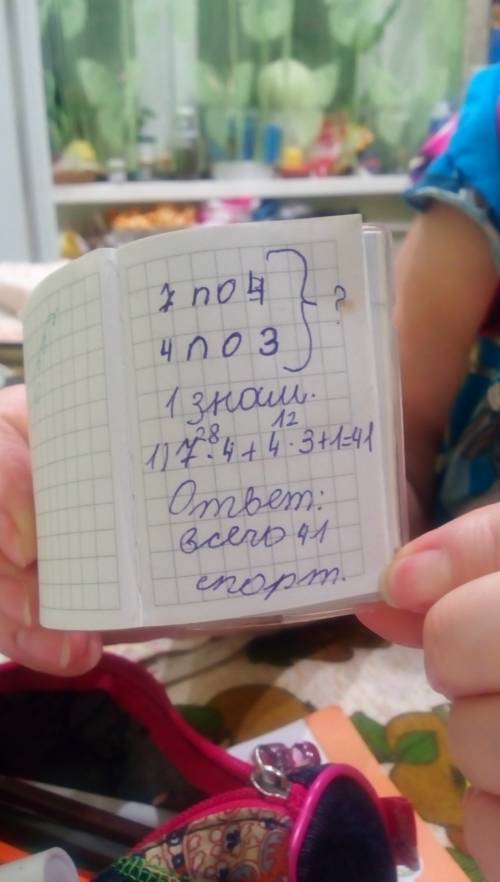 7 по 4 } ?
4 по 3
1 знам.
28 12
1) 7 · 4 + 4 · 3 + 1 = 41
Ответ:
всего 41
спорт.